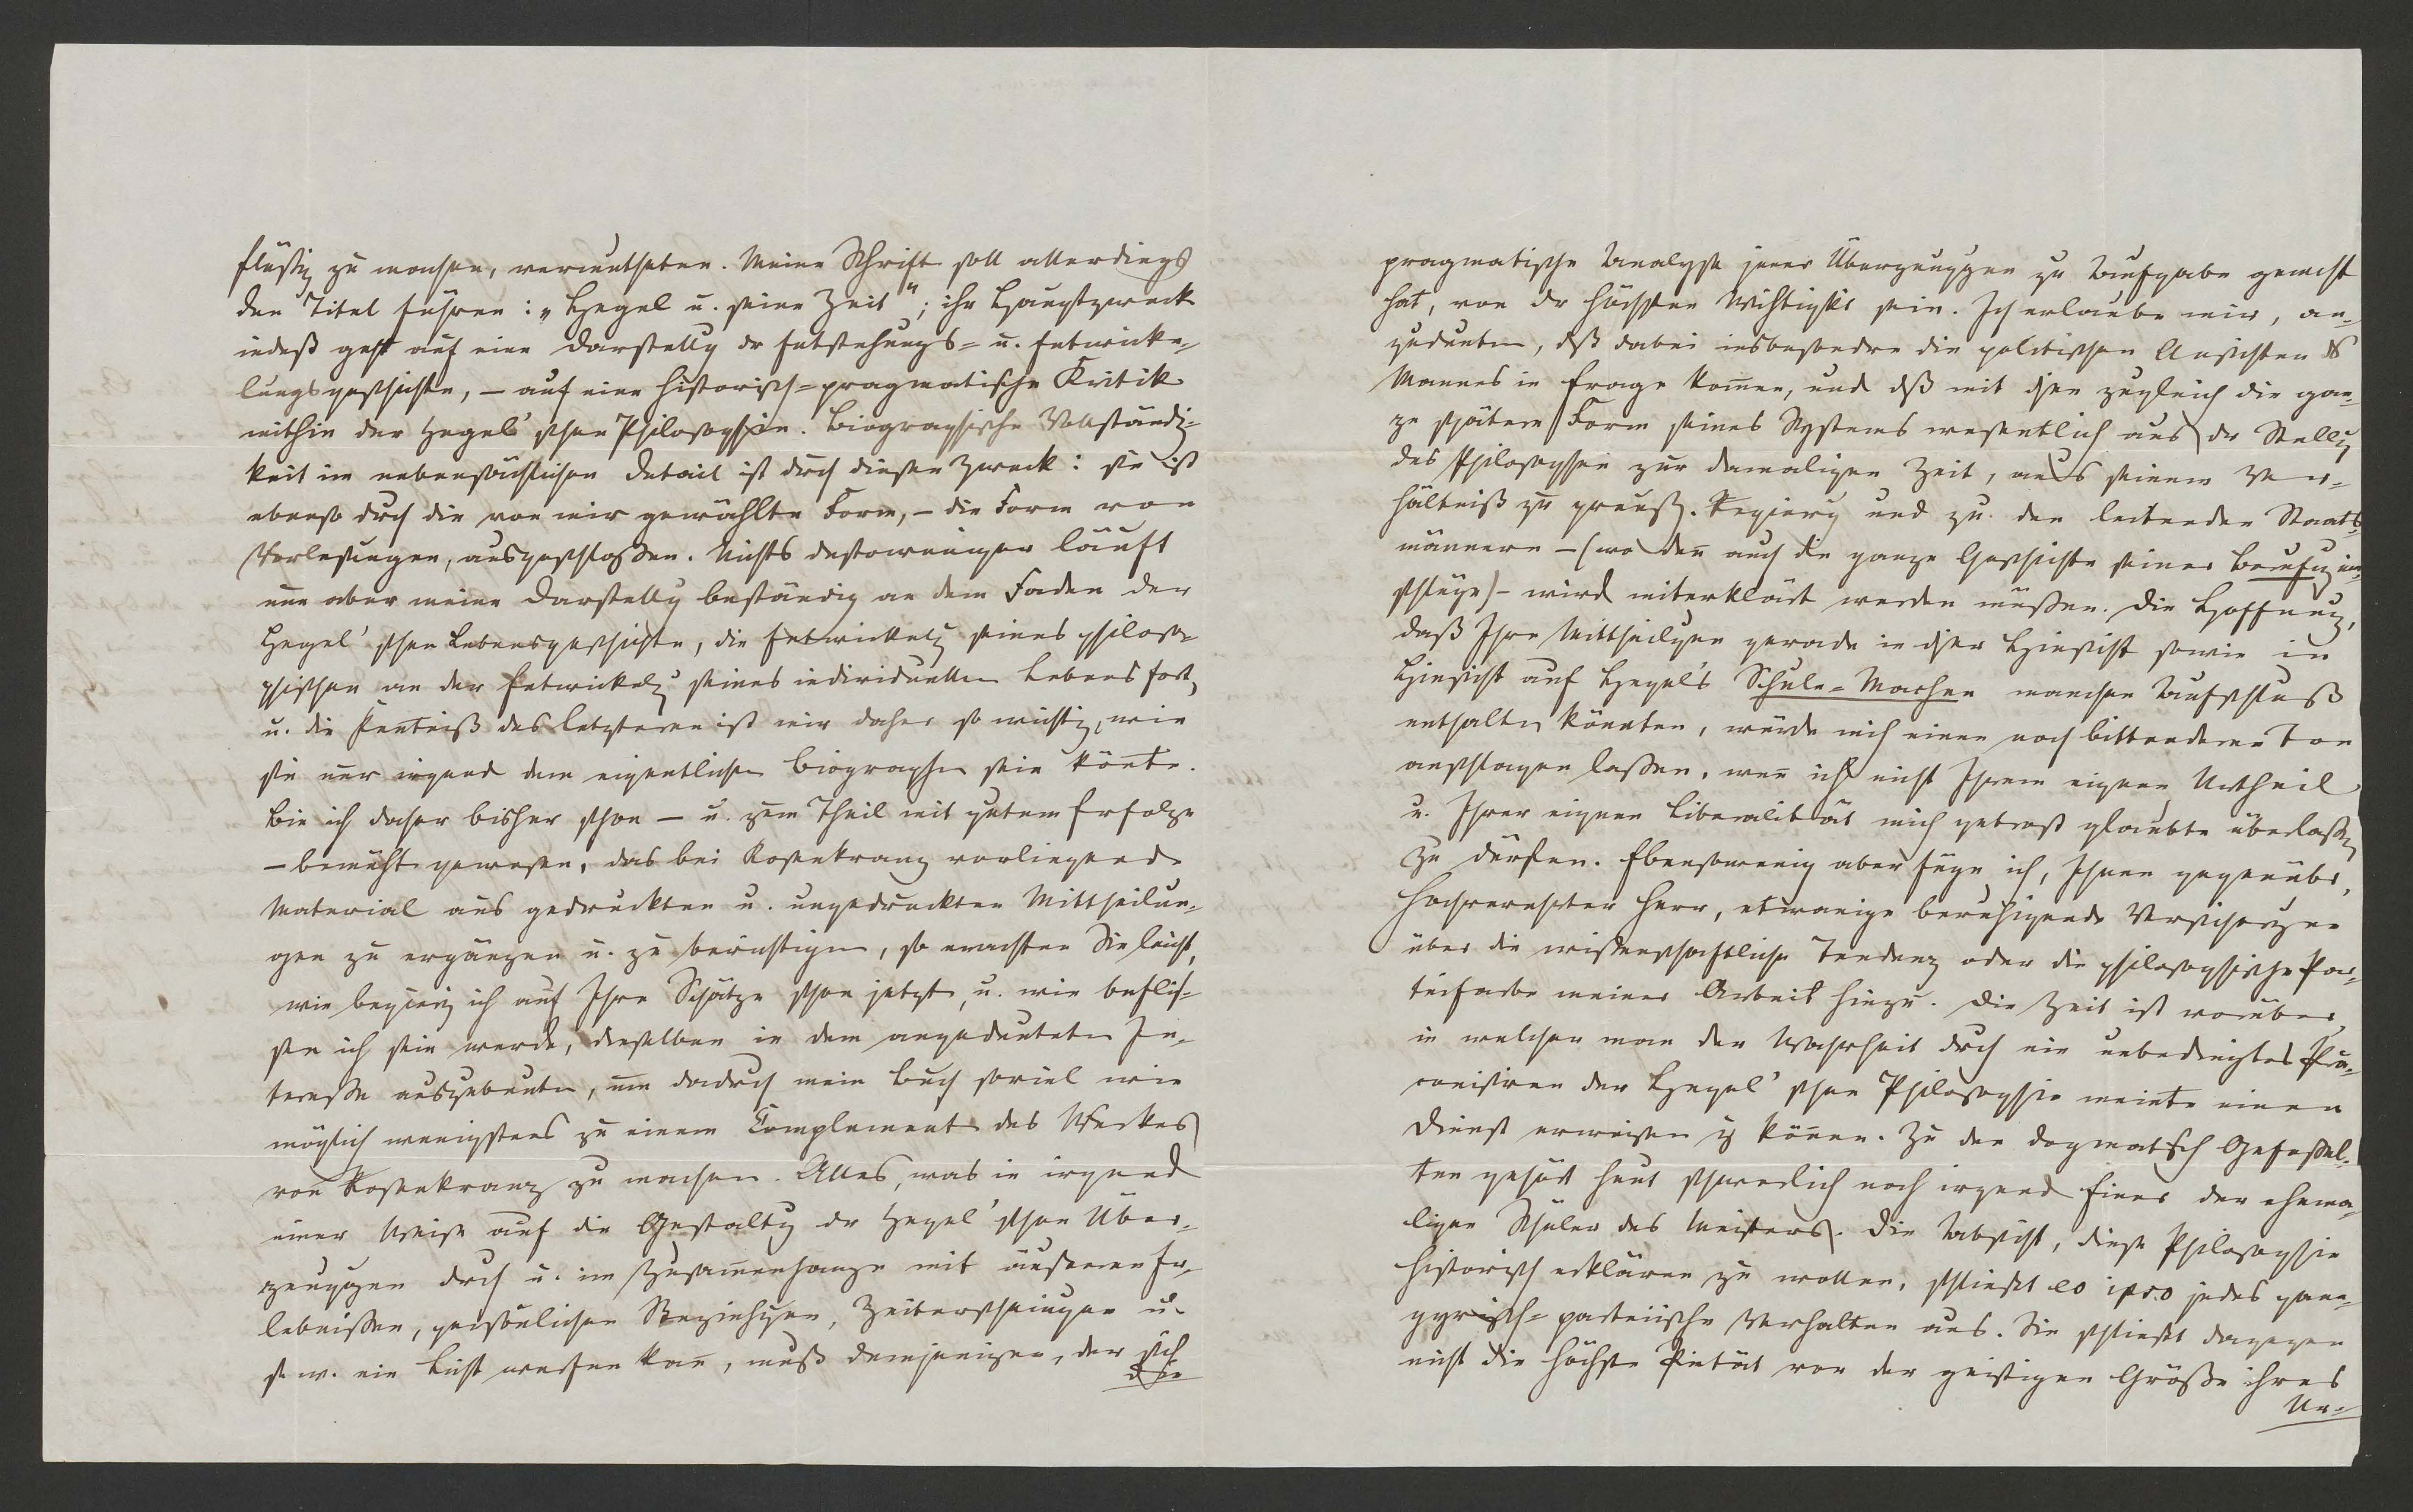 flüssig zu machen, veruntheten. Meine Schrift soll allerdings
den Titel führen: „Hegel u. seine Zeit“; ihr Hauptzweck
indeß geht auf eine Darstellg dr Entstehungs= u. Entwicke-
lungsgeschichte, – auf eine historisch=pragmatische Kritik
mithin der Hegel'schen Philosophie. Biographische Vollständig-
keit im nebensächlichen Detail ist dch diesen Zweck: sie ist
ebenso dch die von mir gewählte Form, – die Form von
Vorlesungen, ausgeschlossen. Nichts destoweniger läuft
nun aber meine Darstellg beständig an dem Faden der
Hegel'schen Lebensgeschichte, die Entwickelg seines philoso-
phischen an der Entwickelg seines individuellen Lebens fort,
u. die Kentniß des letzteren ist mir daher so wichtig, wie
sie nur irgend dem eigentlichen Biographen sein könte.
Bin ich daher bisher schon – u. zum Theil mit gutem Erfolge
– bemüht gewesen, das bei Rosenkranz vorliegende
Material aus gedruckten u. ungedruckten Mittheilun-
gen zu ergänzen u. zu berichtigen, so erachten Sie leicht,
wie begierig ich auf Ihre Schätze schon jetzt, u. wie beflis-
sen ich sein werde, dieselben in dem angedeuteten In-
teresse auszubeuten, um dadrch mein Buch soviel wie
möglich wenigstens zu einem Complement des Werkes
von Rosenkranz zu machen. Alles, was in irgend
einer Weise auf die Gestaltg dr Hegel'schen Über-
zeuggen drch u. im Zusamenhange mit äußeren Er-
lebnissen, persönlichen Beziehgen, Zeiterscheingen u.
s. w. ein Licht werfen kan, muß demjenigen, der sich
die
pragmatische Analyse jener Überzeuggen zu Aufgabe gemacht
hat, von dr höchsten Wichtigkt sein. Ich erlaube mir, an-
zudeuten, dß dabei insbesondre die politischen Ansichten ds
Mannes in Frage komen, und dß mit ihnen zugleich die gan-
ze spätere Form seines Systems wesentlich aus dr Stellg
des Philosophen zur damaligen Zeit, aus seinem Ver-
hältniß zu preuß. Regierg und zu den leitenden Staats-
männern – (wo den auch die ganze Geschichte seiner Berufg ein-
schlüge) – wird miterklärt werden müssen. Die Hoffnung,
daß Ihre Mittheilgen gerade in dser Hinsicht sowie in
Hinsicht auf Hegel's Schule=Machen manchen Aufschluß
enthalten könnten, würde mich einen noch bittenderen Ton
anschlagen lassen, wen ich nicht Ihrem eignen Urtheil
u. Ihrer eignen Liberalität mich getrost glaubte überlassen
zu dürfen. Ebensowenig aber füge ich, Ihnen gegenüber,
Hochverehrter Herr, etwanige beruhigende Versichergen
über die wissenschaftliche Tendenz oder die philosophische Par-
teifarbe meiner Arbeit hinzu. Die Zeit ist vorüber,
in welcher man der Wahrheit drch ein unbedingtes Prä-
conisiren der Hegel'schen Philosophie meinte einen
Dienst erweisen z könen. Zu den dogmatisch Gefessel-
ten gehört heut schwerlich noch irgend Einer der ehema-
ligen Schüler des Meisters. Die Absicht, diese Philosophie
historisch erklären zu wollen, schließt eo ipso jedes pane-
gyrisch=parteiische Verhalten aus. Sie schließt dagegen
nicht die höchste Pietät vor der geistigen Größe ihres
Ur-